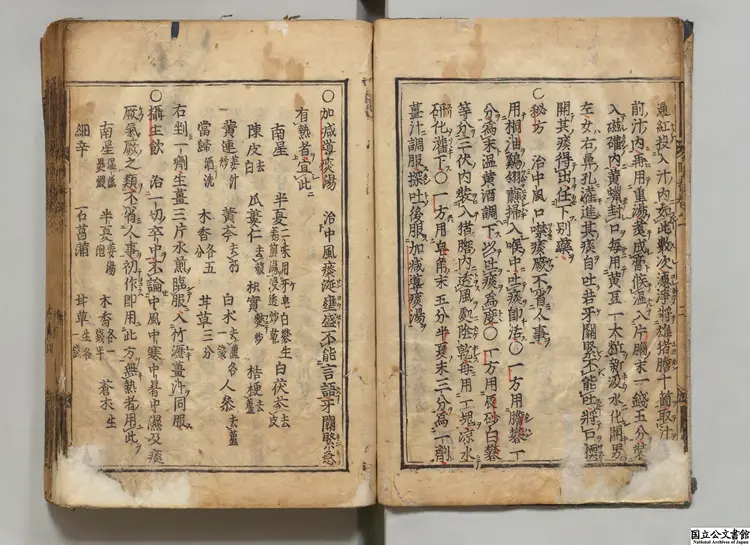 通紅投入汁内如此數次濾淨將雄猪膽十箇取汁
前汁内再用重湯煑成膏候溫入片腦末一錢五分裝
入磁罐内黄蠟封口每用黄豆一大粒新汲水化開男
左女右鼻孔灌進其痰自吐若牙關緊不能吐將口撬
開其痰得出任下別藥
〇秘方 治中風口噤痰厥不省人事
用桐油鷄翎蘸掃入喉中吐痰即活〇一方用膽礬一丁
分爲末溫黄酒調下以吐痰爲度〇一方用辰砂白礬
等分三伏内裝入猪膽内透風處陰乾每用一塊凉水
研化灌下〇一方用皂角末五分半夏末三分爲一劑
薑汁調服探吐後服加減導痰湯
〇加减導痰湯 治中風痰涎壅盛不能言語牙關緊急
有熱者宜此
南星 半夏二味用牙皂白礬生姜煎湯浸透炒乾 白茯苓去皮
陳皮去白 瓜蔞仁去殼 枳實麩炒 桔梗去蘆
黄連姜汁炒 黄芩去朽 白朮去蘆 各 人參去蘆一錢
當歸酒洗 木香各五分 甘草三分
右剉一劑生薑三片水煎臨服入竹瀝薑汁同服
〇攝生飲 治一切卒中不論中風中寒中暑中濕及痰
厥氣厥之類不省人事初作即用此方無熱者用此
南星濕紙裹煨 半夏姜湯泡 木香各一錢半 蒼朮生
細辛 石菖蒲 甘草生各一錢
国立公文書館
National Archives of Japan